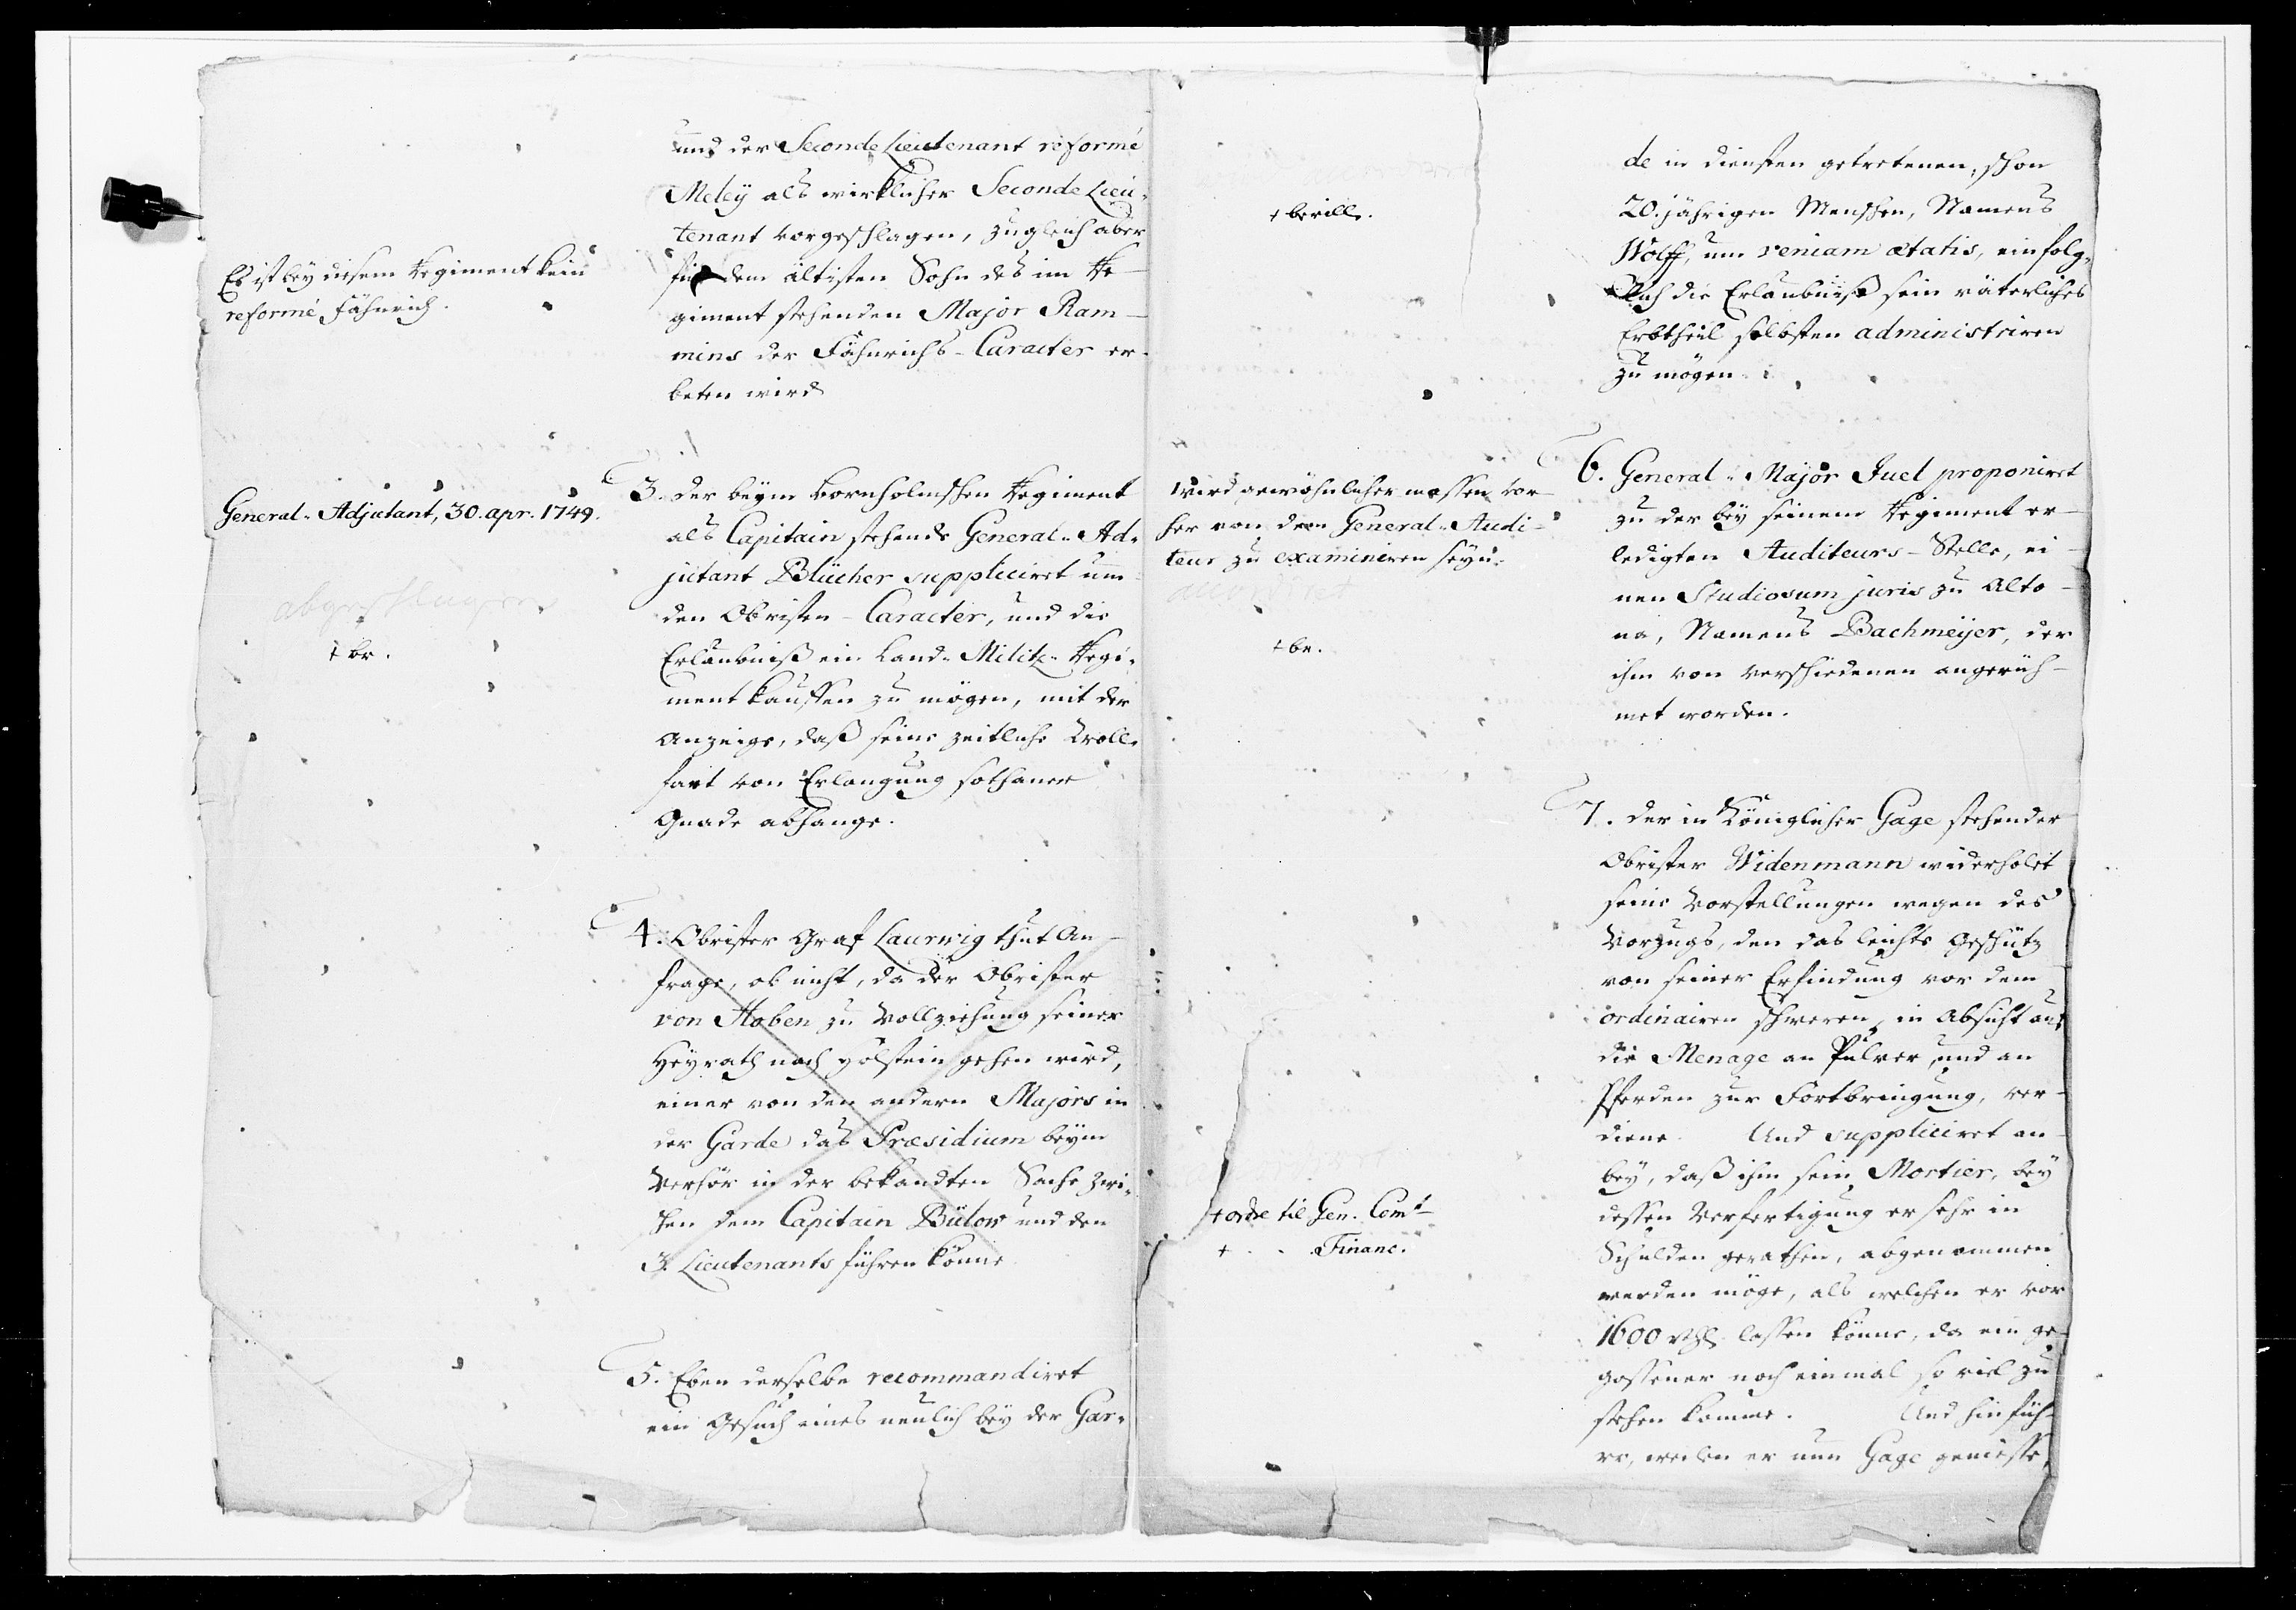 und der Seconde Lieutenant reformé
Meleÿ als wircklicher Seconde Lieu-
tenant vorgeschlagen, zugleich aber
für dem ältisten Sohn des im Re-
giment stehenden Major Ram-
mins der Fähnrichs-Caracter er-
beten wird
Es ist beÿ diesem Regiment kein
reformé Fähnrich.
3. Der beÿm Bornholmschen Regiment
als Capitain stehende General-Ad-
jutant Blücher suppliciret um
den Obristen-Caracter, und die
Erlaubniß ein Land-Militz-Regi-
ment kauffen zu mögen, mit der
Anzeige, daß seine zeitliche Woll-
fart von Erlangung sothaner
Gnade abhange.
General-Adjutant, 30. apr. 1749.
abgeschlagen
+ br.
4. Obrister Graf Laurwig thut An-
frage, ob nicht, da der Obrister
von Hoben zu Vollziehung seiner
Heÿrath nach Holstein gehen wird,
einer von den andern Majors in
der Garde das Præsidium beÿm
Verhör in der bekandten Sache zwi-
schen dem Capitain Bülow und den
3. Lieutenants führen könne
5. Eben derselbe recommandiret
ein Gesuch eines neulich beÿ der Gar-
de in diensten getretenen, schon
20. jährigen Menschen, Namens
Wolff, um veniam ætatis, einfolg-
lich die Erlaubniß sein väterliches
Erbtheil selbsten administriren
zu mögen.
+ bevill.
6. General-Major Juel proponiret
zu der beÿ seinem Regiment er-
ledigten Auditeurs-Stelle, ei-
nen Studiosum juris zu Alto-
na, Namens Bachmeÿer, der
ihm von verschiedenen angerüh-
met worden.
Wird gewöhnlicher massen vor-
her von dem General-Audi-
teur zu examiniren seÿn.
+ be.
7. Der in Königlicher Gage stehender
Obrister Widenmann widerholet
seine Vorstellungen wegen des
Vorzugs, den das leichte Geschütz
von seiner Erfindung vor dem
ordinairen schweren, in Absicht auf
die Menage an Pulver, und an
Pferden zur Fortbringung, ver-
diene. Und suppliciret an-
beÿ, daß ihm sein Mortier, beÿ
dessen Verfertigung er sehr in
Schulden gerathen, abgenommen
werden möge, als welchen er vor
1600 Rthl. lassen könne, da ein ge-
gossener noch einmal so viel zu
stehen komme. Und hinfüh-
ro, weilen er nun Gage geniesse,
+ ordre til Gen. Comt
+ - - Financ.